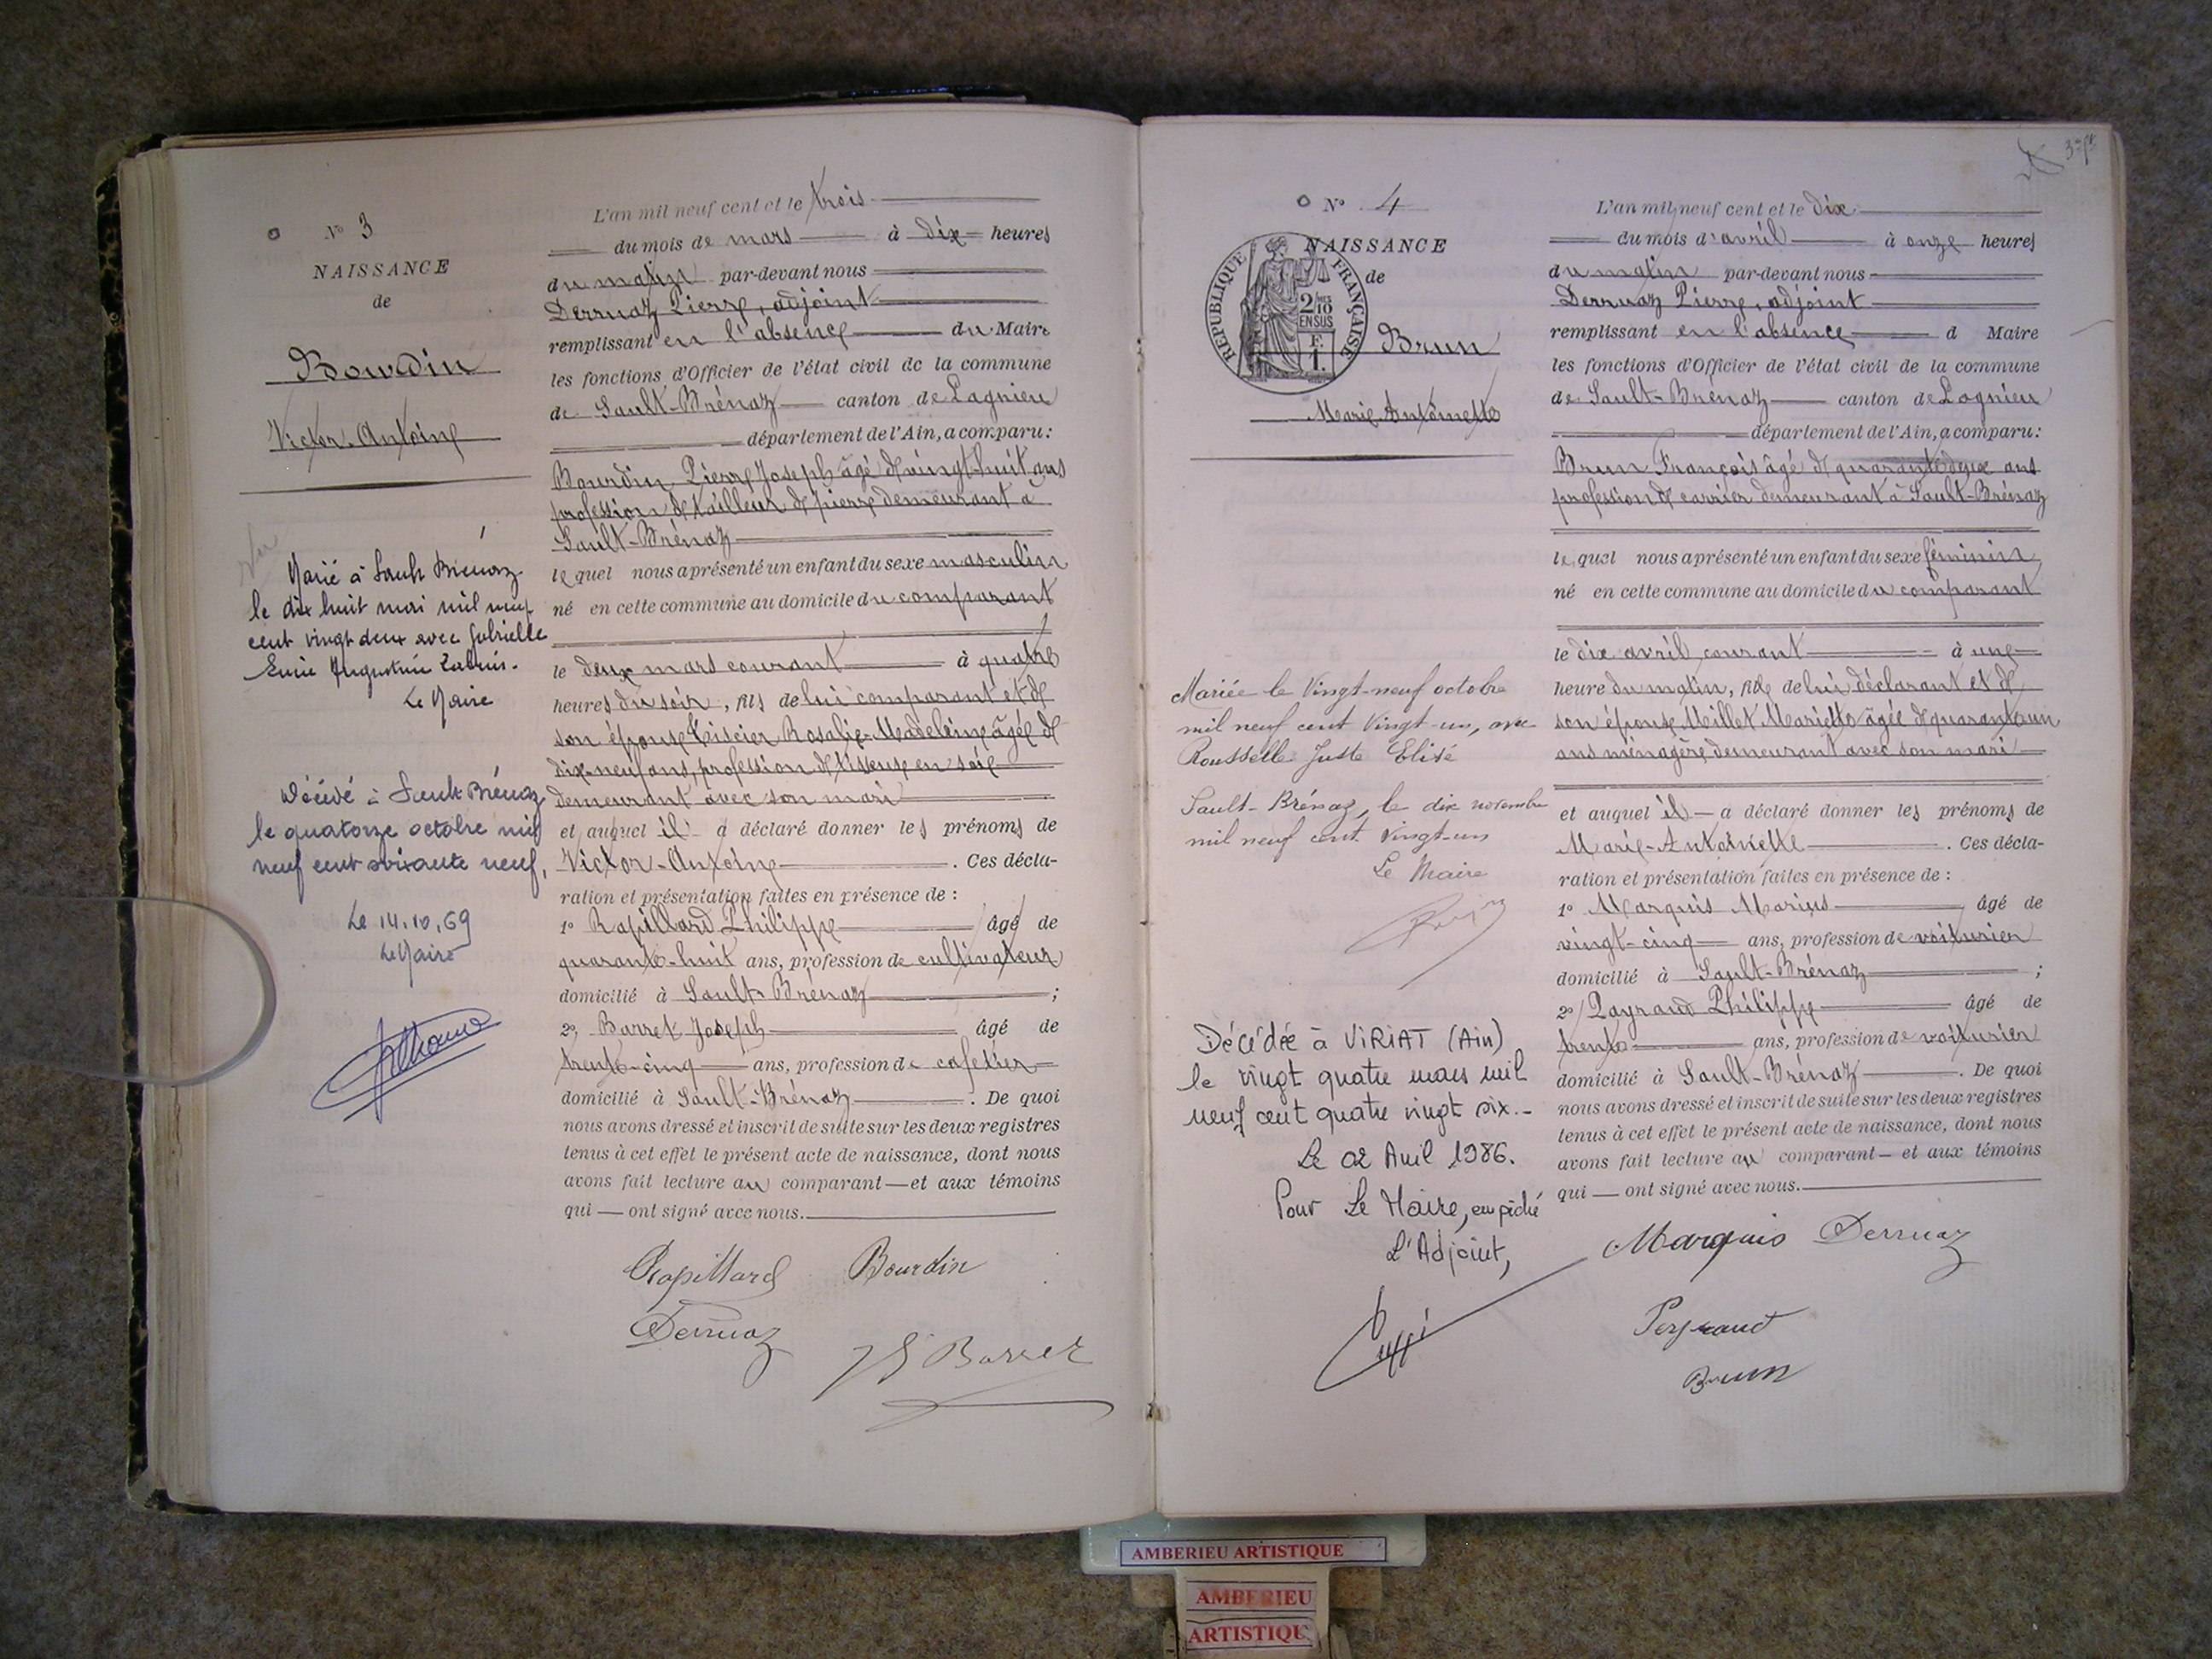 N° 3
NAISSANCE
de
Bourdin
Victor-Antoine
Marié à Sault Brénaz
le dix huit mai mil neuf
cent vingt deux avec Gabrielle
Augustine
Le Maire
Décédé à Sault Brénaz
le quatorze octobre mil
neuf cent soixante neuf.
Le 14.10.69
Le Maire
L'an mil neuf cent et le trois
du mois de mars à dix heures
du matin par-devant nous
Derruaz Pierre, adjoint
remplissant en l'absence du Maire
les fonctions d'Officier de l'état civil de la commune
de Sault-Brénaz canton de Lagnieu
département de l'Ain, a comparu :
Bourdin Pierre Joseph âgé de vingt-huit ans
profession de tailleur de pierre demeurant à
Sault-Brénaz
lequel nous a présenté un enfant du sexe masculin
né en cette commune au domicile du comparant
le deux mars courant à quatre
heures du soir, fils de lui comparant et de
son épouse Rosalie-Madeleine âgée de
dix-neuf ans, profession de tisseuse en soie
demeurant avec son mari
et auquel il a déclaré donner les prénoms de
Victor-Antoine . Ces décla-
ration et présentation faites en présence de :
1° Rapillard Philippe âgé de
quarante-huit ans, profession de cultivateur
domicilié à Sault-Brénaz ;
2° Barret Joseph âgé de
trente-cinq ans, profession de cafetier
domicilié à Sault-Brénaz . De quoi
nous avons dressé et inscrit de suite sur les deux registres
tenus à cet effet le présent acte de naissance, dont nous
avons fait lecture au comparant — et aux témoins
qui — ont signé avec nous.
Rapillard Bourdin
Derruaz
Barret
3e ft
N° 4
NAISSANCE
de
REPUBLIQUE FRANÇAISE
2/10
EN SUS
F.
1.
Brun
Marie Antoinette
Mariée le Vingt-neuf octobre
mil neuf cent Vingt-un, avec
Rousselle Juste Elisé
Sault-Brénaz, le dix novembre
mil neuf cent Vingt-un
Le Maire
Décédée à VIRIAT (Ain)
le vingt quatre mars mil
neuf cent quatre vingt six.-
Le 02 Avril 1986.
Pour Le Maire, empêché
L'Adjoint,
L'an mil neuf cent et le dix
du mois d'avril à onze heures
du matin par-devant nous
Derruaz Pierre, adjoint
remplissant en l'absence d Maire
les fonctions d'Officier de l'état civil de la commune
de Sault-Brénaz canton de Lagnieu
département de l'Ain, a comparu :
Brun François âgé de quarante deux ans
profession de carrier demeurant à Sault-Brénaz
lequel nous a présenté un enfant du sexe féminin
né en cette commune au domicile du comparant
le dix avril courant à une
heure du matin, fille de lui déclarant et de
son épouse Millet Mariette âgée de quarante un
ans ménagère demeurant avec son mari
et auquel il — a déclaré donner les prénoms de
Marie-Antoinette . Ces décla-
ration et présentation faites en présence de :
1° Marquis Marius âgé de
vingt-cinq ans, profession de voiturier
domicilié à Sault-Brénaz ;
2° Payraud Philippe âgé de
trente ans, profession de voiturier
domicilié à Sault-Brénaz . De quoi
nous avons dressé et inscrit de suite sur les deux registres
tenus à cet effet le présent acte de naissance, dont nous
avons fait lecture au comparant — et aux témoins
qui — ont signé avec nous.
Marquis Derruaz
Peyraud
Brun
AMBERIEU ARTISTIQUE
AMBERIEU
ARTISTIQUE